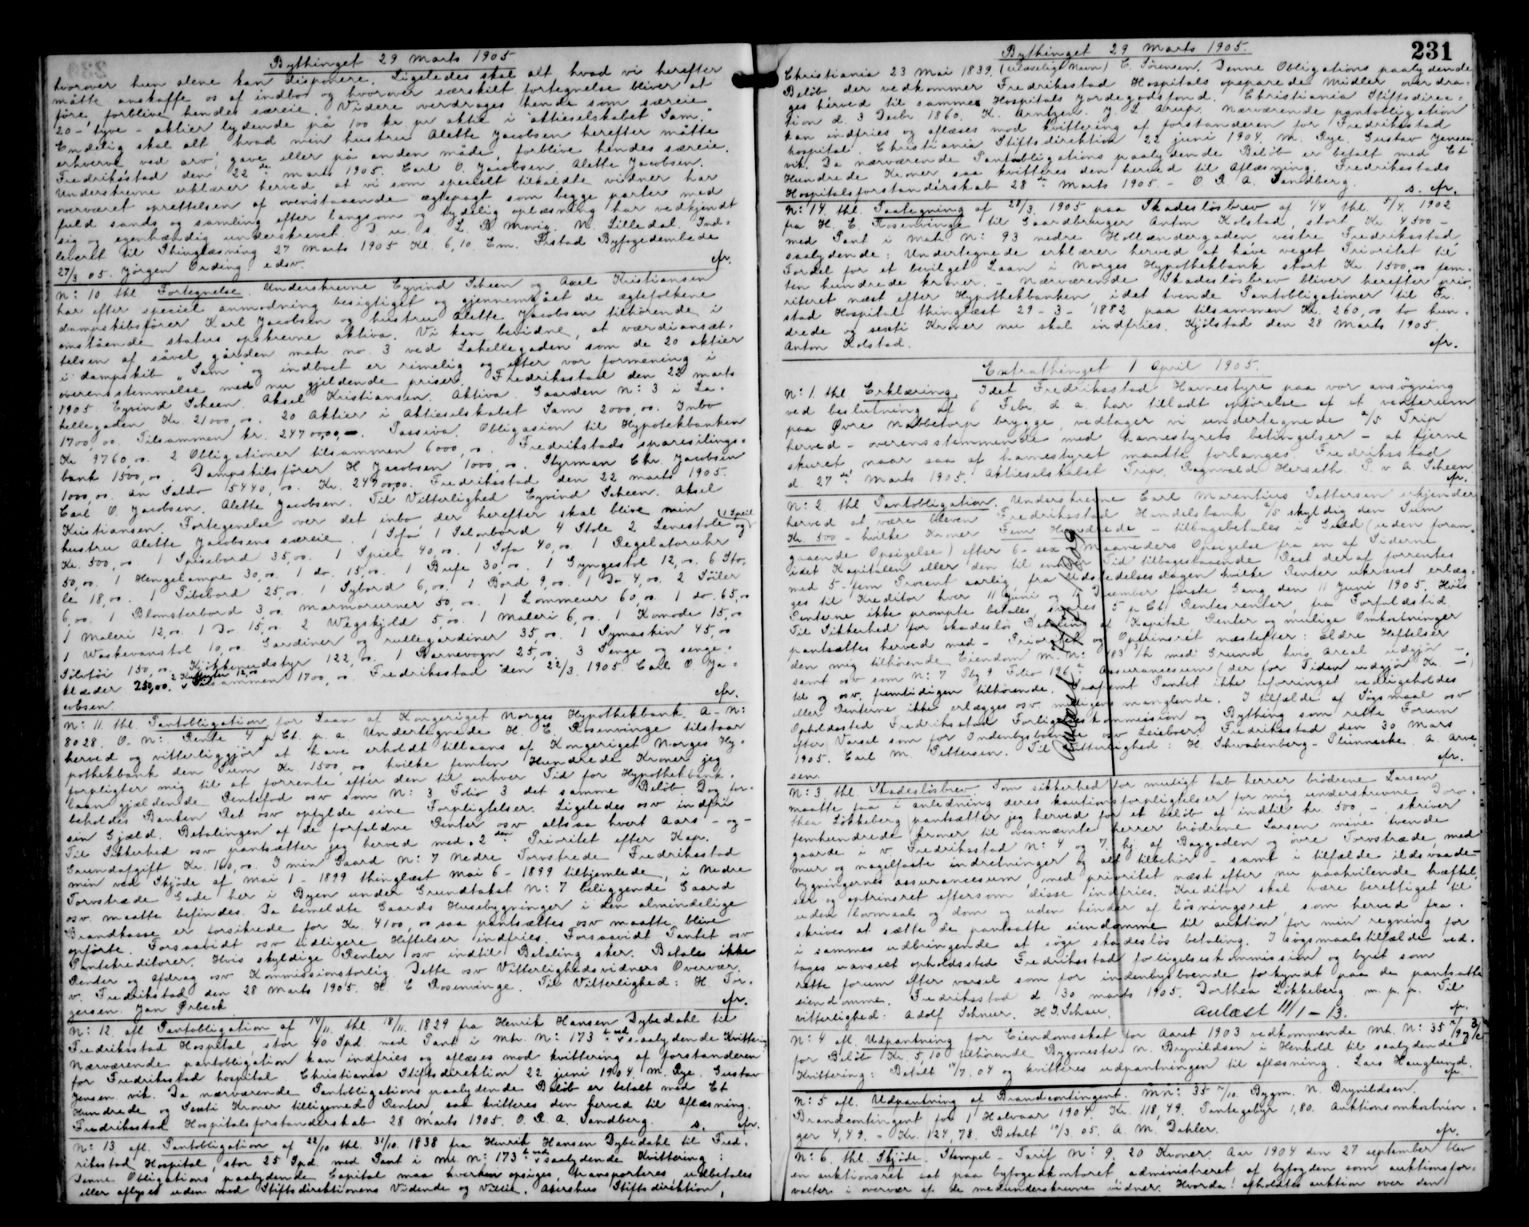 Bythinget 29 Marts 1905
hvorover hun alene kan disponere. Ligeledes skal alt hvad vi herefter
måtte anskaffe os af indbo og hvorover særskilt fortegnelse bliver at
føre, forblive hendes særeie. Videre verdrages hende som særeie
20 - tyve - aktier lydende på 100 kr pr aktie i "aktieselskabet Sam."
Endelig skal alt hvad min hustru Alette Jacobsen herefter måtte
erhverve ved arv, gave eller på anden måde, forblive hendes særeie.
Fredriksstad den 22de marts 1905. Carl O. Jacobsen. Alette Jacobsen.
Underskrevne erklærer herved, at vi som specielt tilkaldte vidner har
overværet oprettelsen af ovenstaaende ægtepagt som begge parter med
fuld sands og samling efter langsom og tydelig oplæsning har vedkjendt
sig og egenhændig underskrevet D. u. s. L. R. Mowig. N. Lilledal. Ind-
leveret til Thinglæsning 27 Marts 1905 Kl. 6,10 Em. Frstad Byfogedembede
27/3 05. Jørgen Ording edsv. cfr.
N: 10 thl Fortegnelse. Underskrevne Eyvind Scheen og Axel Kristiansen
har efter speciel anmodning besigtiget og gjennemgået de ægtefolkene
dampskibsfører Karl Jacobsen og hustru Alette Jacobsen tilhørende, i
omstående status opskrevne aktiva. Vi kan bevidne, at værdiansæt-
telsen af såvel gården matr. no. 3 ved Lahellegaden, som de 20 aktier
i dampskib "Sam" og indboet er rimelig og efter vor formening i
overensstemmelse med nu gjeldende priser. Fredriksstad den 22 marts
1905 Eyvind Scheen. Aksel Kristiansen. Aktiva. Gaarden N: 3 i La-
hellegaden Kr. 21000,00. 20 Aktier i Aktieselskabet Sam 2000,00. Inbo
1700,00. Tilsammen kr. 24700,00. Passiva. Obligasion til Hypotekbanken
Kr. 9760,00. 2 Obligationer tilsammen 6000,00. Fredrikstads sparesilings-
bank 1500,00. Dampskibsfører H Jacobsen 1000,00. Styrman Chr. Jacobsen
1000,00. An Saldo 5440,00. Kr. 24700,00. Fredriksstad den 22 marts 1905.
Carl O. Jacobsen. Alette Jacobsen. Til Vitterlighed Eyvind Scheen. Aksel
Kristiansen. Fortegnelse over det inbo, der herefter skal blive min
hustru Alette Jacobsens særeie. 1 Sofa 1 Salonbord 4 Stole 2 Lenestole og 1 Speil
Kr. 500,00. 1 Spisebord 35,00. 1 Spiel 40,00. 1 Sofa 40,00. 1 Regelatoruhr
50,00. 1 Hengelampe 30,00. 1 do. 15,00. 1 Bufe 30,00. 1 Gyngestol 12,00. 6 Sto-
le 18,00. 1 Pibebord 25,00. 1 Sybord 6,00. 1 Bord 9,00. 1 Do 4,00. 2 Søiler
6,00. 1 Blomsterbord 3,00. marmorurner 50,00. 1 Lommeur 60,00. 1 do. 65,00
1 Maleri 12,00. 1 Do 15,00. 2 Wegskjold 5,00. 1 Maleri 6,00. 1 Komode 15,00
1 Waskevanstol 10,00. Gardiner og rullegardiner 35,00. 1 Symaskin 45,00
Sølvtøi 150,00. Kjøkkenudstyr 122,00. 1 Barnevogn 25,00. 3 Senge og senge-
klæder 250,00. 2 Kufferter 12,00 Tilsammen 1700,00. Fredriksstad den 22/3 1905 Carl O Ja-
cobsen. cfr.
N: 11 thl Pantobligation for Laan af Kongeriget Norges Hypothekbank. A - N:
8028. O. N: Rente 4 pCt. p. a. Undertegnede H. E. Rosenvinge tilstaar
herved og vitterliggjør at have erholdt tillaans af Kongeriget Norges Hy-
pothekbank den Sum Kr. 1500,00 hvilke femten Hundrede Kroner jeg
forpligter mig til at forrente efter den til enhver Tid for Hypothekbank-
laan gjældende Rentefod osv som N: 3 Folio 3 det samme Beløb. Dog for-
beholdes Banken Ret osv opfylde sine Forpligtelser. Ligeledes osv indfri
sin Gjæld. Betalingen af de forfaldne Renter osv altsaa hvert Aars - og -
Til Sikkerhed osv pantsætter jeg herved med 2den Prioritet efter Kap.
Grundafgift Kr. 160,00. I min Gaard N: 7 Nedre Torvstrede Fredriksstad
min ved Skjøde af Mai 1 - 1899 thinglæst Mai 6 - 1899 tilhjemlede, i Nedre
Torvstræde Gade her i Byen under Grundtakst N: 7 beliggende Gaard
osv. maatte befindes. Da bemeldte Gaards Husebygninger i den almindelige
Brandkasse er forsikrede for Kr. 4100,00 saa pantsættes osv maatte blive
opførte. Forsaavidt osv tidligere Heftelser indfries. Forsaavidt Pantet osv
Pantekreditorer. Hvis skyldige Renter osv indtil Betaling sker. Betales ikke
Renter og Afdrag osv Kommissionsforlig. Dette osv Vitterlighedsvidners Overvær.
v. Fredrikstad den 28 Marts 1905. H. E Rosenvinge. Til Vitterlighed: H. Tor-
gersen. Jan Probeck. cfr.
N: 12 afl Pantobligation af 14/11 thl 18/11 1829 fra Henrik Hansen Dybedahl til
Fredriksstad Hospital stor 40 Spd med Pant i Mtr. N: 173 b med saalydende Kvittering
Nærværende pantobligation kan indfries og aflæses mod kvittering af forstanderen
for Fredrikstad hospital. Christiania Stiftsdirektion 22 juni 1904. M. Rye. Gustav
Jensen. vik. Da nærværende Pantobligations paalydende Beløb er betalt med Et
Hundrede og Sexti Kroner tilligemed Renter, saa kvitteres den herved til Aflæsning.
Fredriksstad Hospitalsforstanderskab 28 Marts 1905. O. R. A. Sandberg. s. cfr.
N: 13 afl. Pantobligation af 22/10 thl. 31/10 1838 fra Henrik Hansen Dybedahl til Fred-
rikstad Hospital, stor 25 Spd med Pant i Mtr N: 173 b med saalydende Kvittering:
Denne Obligations paalydende Capital maa hverken opsiges, transporteres udbetales
eller aflyses uden med Stiftsdirektionens Vidende og Villie. Akershus Stiftsdirektion,
Bythinget 29 Marts 1905.
231
Christiania 23 Mai 1839. (ulæseligt Navn) C. Sørensen. Denne Obligations paalydende
Beløb der vedkommer Fredriksstad Hospitals opsparede Midler overdra-
ges herved til samme Hospitals Jordegodsfond. Christiania Stiftsdirec-
tion d. 3 Decbr 1860. K. Arntzen. J. L. Arup. Nærværende pantobligation
kan indfries og aflæses mod kvittering af forstanderen for Fredriksstad
hospital. Christiania Stiftsdirektion 22 juni 1904 M. Rye. Gustav Jensen
vik. Da nærværende Pantobligations paalydende Beløb er betalt med Et
Hundrede Kroner, saa kvitteres den herved til Aflæsning. Fredriksstads
Hospitalsforstanderskab 28de Marts 1905 - O R A. Sandberg. s. cfr.
N: 14. thl. Paategning af 28/3 1905 paa Skadesløsbrev af 1/4 thl 5/4 1902
fra H. E. Rosenvinge til Gaardbruger Anton Kolstad, stort Kr 4500 -
med Pant i Matr N: 93 nedre Hollændergaden vestre Fredriksstad,
saalydende: Undertegnede erklærer herved at have veget Prioritet til
Fordel for et bevilget Laan i Norges Hypothekbank stort Kr 1500,00 fem-
ten hundrede kroner. - Nærværende Skadesløsbrev bliver herefter prio-
riteret næst efter Hypothekbanken, idet tvende Pantobligationer til Fr.
stad Hospital thinglæst 29 - 3 - 1882 paa tilsammen Kr. 260,00 to hun-
drede og sexti Kroner nu skal indfries. Kjølstad den 28 Marts 1905.
Anton Kolstad. cfr.
Extrathinget 1 April 1905.
N: 1. thl Erklæring. Idet Fredriksstad Havnestyre paa vor ansøgning
ved beslutning af 6 Febr. d a. har tilladt opførelse af et venterum
paa Øvre Nabbetorp brygge, vedtager vi undertegnede A/S Trip
herved - overensstemmende med havnestyrets betingelser - at fjerne
skuret, naar saa af havnestyret maatte forlanges. Fredriksstad
d 27de Marts 1905. Aktieselskabet Trip. Ragnvald Herseth. P. v A Scheen.
cfr.
N: 2 thl Pantobligation. Underskrevne Carl Marentius Pettersen erkjender
herved at være bleven Fredriksstad Handelsbank A/S skyldig den Sum
Kr. 500 - hvilke Kroner Fem Hundrede - tilbagebetales i Guld (uden foran-
gaaende Opsigelse) efter 6 - sex - Maaneders Opsigelse fra en af Siderne.
Indet Kapitalen eller den til enhver Tid tilbagestaaende Rest deraf forrentes
med 5 - fem Procent aarlig fra Udstedelsesdagen hvilke Renter ukrævet erlæg-
ges til Kreditor hver 11 Juni og 11 December første Gang den 11 Juni 1905. Hvis
Renterne ikke prompte betales, svares 5 p Ct. Rentesrenter, fra Forfaldstid.
Til Sikkerhed for skadesløs Betaling af Kapital Renter og mulige Omkostninger
pantsættes herved med - Prioritet og Optrinsret næstefter: ældre Heftelser
den mig tilhørende Eiendom M. N: 483 b/k med Grund hvis Areal udgjør -,
samt osv som N: 7 Pbg 9 Folio 196 Assurancesum (der for Tiden udgjør Kr. - )
til og osv fremtidigen tilhørende. Forsaavidt Pantet ikke uforringet vedligeholdes
eller Renterne ikke erlægges osv muligen manglende. I tilfælde af Søgsmaal osv
Opholdssted Fredriksstad Forligelseskommission og Bything som rette Forum
efter Varsel som for Indenbysboende osv Leieboer. Fredriksstad den 30 Mars
1905. Carl M. Pettersen. Til Vitterlighed: H Schwabenberg - Plünnecke. A. Arne-
sen. cfr.
Aflæst 19/11 1909
N: 3. thl. Skadesløsbrev. Som sikkerhed for muligt tab herrer brødrene Larsen
maatte faa i anledning deres kautionsforpligtelser for mig underskrevne Doro-
thea Løkkeberg pantsætter jeg herved for et beløb af indtil kr. 500 -, skriver
femhundrede kroner til ovennævnte herrer brødrene Larsen mine tvende
gaarde i v Fredriksstad N: 4 og 7, hj af Baggaden og øvre Torvstræde, med
mur og nagelfaste indretninger og alt tilbehør - samt i tilfælde ildsvaade
bygningernes assurancesum, med prioritet næst efter nu paahvilende hæftel-
ser og optrinsret eftersom disse indfries. Kreditor skal være berettiget til
uden lovmaal og dom og uden hinder af løsningsret, som herved fra-
skrives at sætte de pantsatte eiendomme til auktion for min regning for
i sammes udbringende at søge skadesløs betaling. I søgsmaalstilfælde ved-
tages uanseet opholdssted Fredriksstad forligelseskommission og byret som
rette forum efter varsel som for indenbysboende forkyndt paa de pantsatte
eiendomme. Fredriksstad d 30 marts 1905. Dorthea Løkkeberg m. p. p. Til
vitterlighed: Adolf Schnur. H. S. Schau. Avlæst 11/1 - 13. cfr.
N: 4 afl. Udpantning for Eiendomsskat for Aaret 1903 vedkommende Mtr. N: 35
for Beløb Kr. 5,10 tilhørende Bygmester N. Brynildsen i Henhold til saalydende
Kvittering: Betalt 11/7. 04 og kvitteres udpantningen til aflæsning. Lars Hauglund.
cfr.
N: 5 afl. Udpantning af Brandcontingent. Mn: 35 Bygm. N. Brynildsen.
Brandcontingent for 1 Halvaar 1904 Kr. 118,49. Pantegebyr 1,80. Auktionsomkostnin-
ger 4,49. - Kr. 124,78. Betalt 10/3. 05. A. M. Dahler. cfr.
N: 6 thl Skjøde. Stempel - Tarif N: 9, 20 Kroner. Aar 1904 den 27 september blev
en auktionsret sat paa byfogedkontoret administreret af byfogden som auktionsfor-
valter i overvær af de medunderskrevne vidner. Hvorda! afholdtes auktion over den